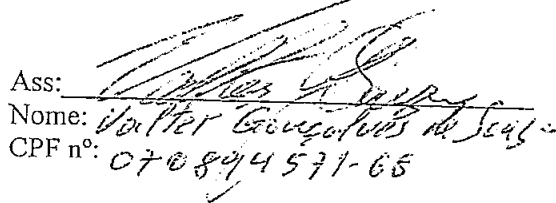 Ass:
Nome: Valter Gonçalves de
CPF nº: 070894571-